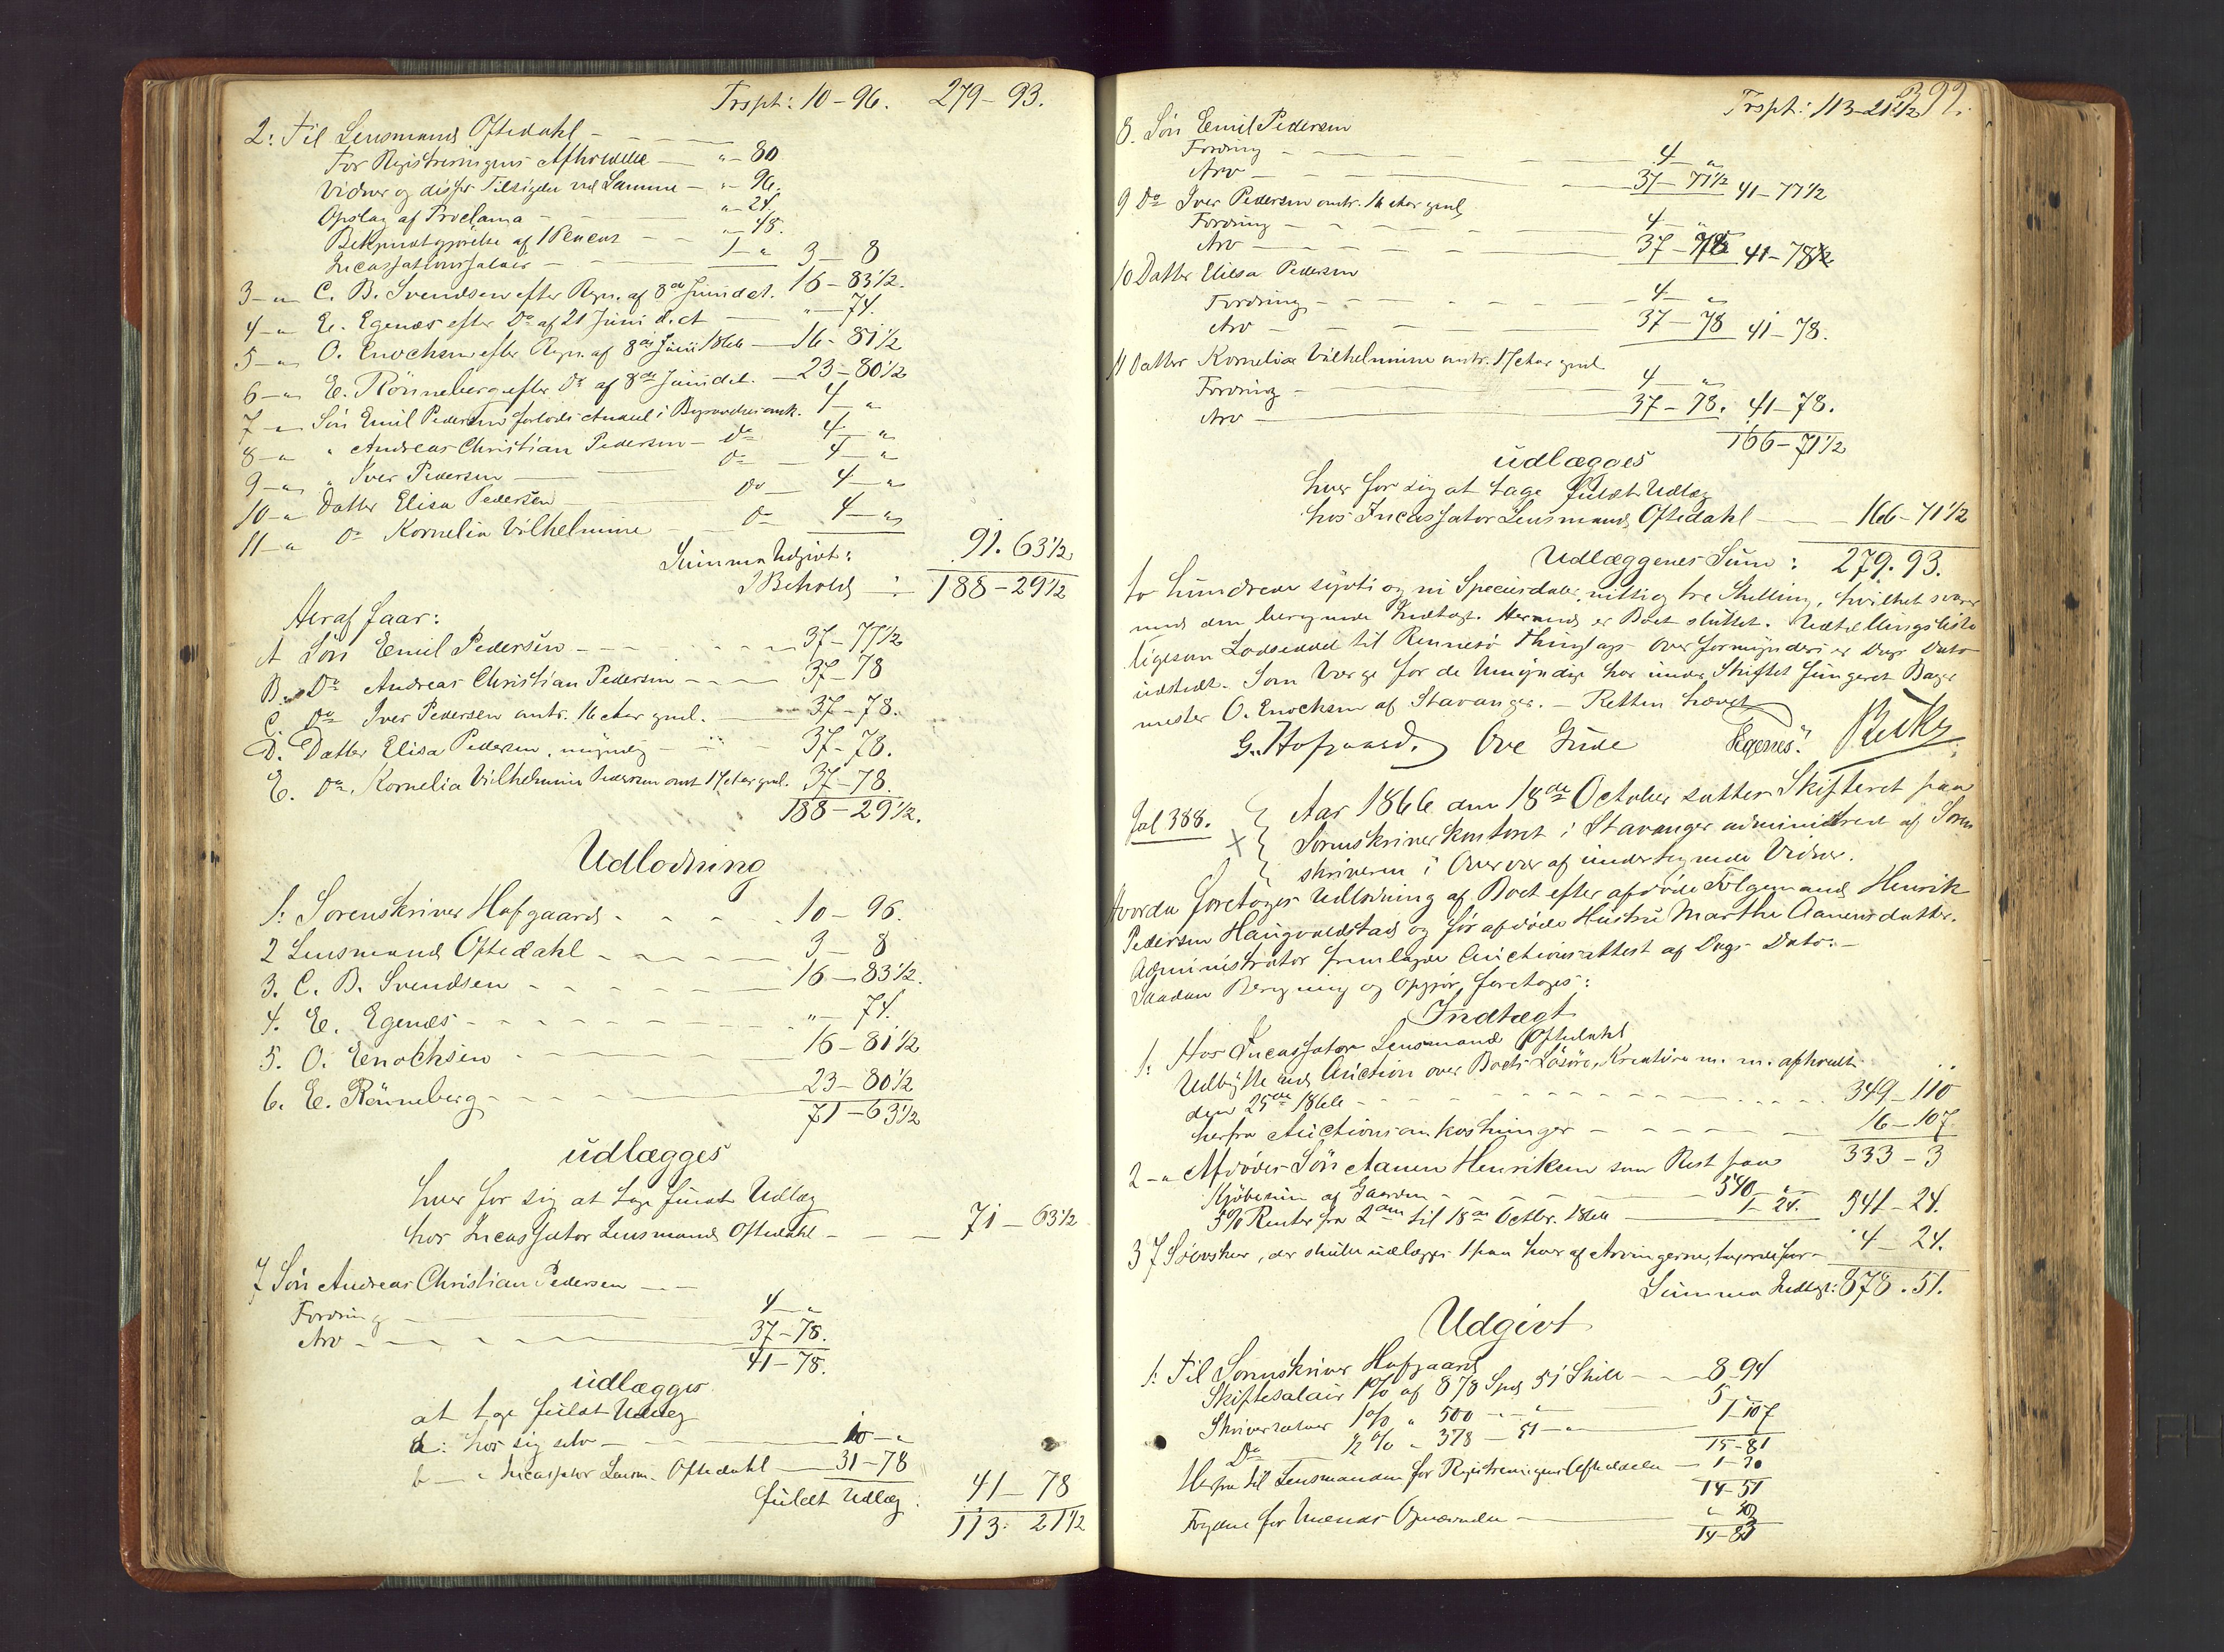 Trspt: 10-96. 279-93.
2: Til Lensmand Oftedahl -
For Registreringens Afholdelse — "-80
Vidner og disses Tilsigelse ved Samme - "-96.
Opslag af Proclama - "-24.
Bekjendtgjørelse af 1 - "-48.
Incassationssalair - 1-" 3-8
3-" C. B. Svendsen efter Regn. af 8de Juni d.A. 16-83½.
4-" E. Egenæs efter Do af 21 Juni d. A — "-74.
5-" O. Enochsen efter Regn. af 8de Juni 1866 — 16-81½
6-" E. Rönneberg efter Do af 8de Juni d.A. — 23-80½
7-" Søn Emil Pedersen forlods Andeel i 4-"
8-" " Andreas Christian Pedersen - Do 4-"
9-" " Iver Pedersen — Do - 4-"
10-" Datter Elisa Pedersen — Do 4-"
11-" Do Kornelia Vilhelmine Do 4-"
Summa Udgivt: 91. 63½
I Behold : 188-29½
Heraf faar:
A Søn Emil Pedersen - 37-77½
B. Do Andreas Christian Pedersen - 37-78
C. Do Iver Pedersen omtr. 16 Aar gml. - 37-78.
D. Datter Elisa Pedersen, myndig - 37-78.
E. Do Kornelia Vilhelmine Pedersen omt 17 Aar gml. 37-78.
188-29½.
Udlodning
1: Sorenskriver Hofgaard - 10-96.
2 Lensmand Oftedahl - 3-8
3. C. B. Svendsen - 16-83½.
4. E. Egenæs - "-74.
5. O. Enochsen - 16-81½
6. E. Rönneberg - 23-80½
71-63½
udlægges
hver for sig at tage fuldt Udlæg
hos Incassator Lensmand Oftedahl - 71-63½
7 Søn Andreas Christian Pedersen —
Fordring — 4-"
Arv - 37-78.
41-78.
udlægges
at tage fuldt Udlæg
a: hos sig selv — 10-"
b - " Incassator Lensm. Oftedahl — 31-78
fuldt Udlæg: 41-78
113: 21½
Trspt: 113-21½ 399.
8. Søn Emil Pedersen
Fordring - 4-"
Arv - 37-77½ 41-77½
9 Do Iver Pedersen omtr. 16 Aar gml
Fordring - 4-"
Arv — 37-78 41-78
10 Datter Elisa Pedersen
Fordring - 4-"
Arv - 37-78 41-78.
11 Datter Kornelia Vilhelmine omtr. 17 Aar gml.
Fordring - 4-"
Arv — 37-78. 41-78.
166-71½
udlægges
hver for sig at tage fuldt Udlæg
hos Incassator Lensmand Oftedahl — 166-71½
Udlæggenes Sum: 279. 93.
to hundrede sytti og ni Speciesdaler, nitti og tre Skilling, hvilket svarer
mod den beregnede Indtægt. Hermed er Boet sluttet. Udtællingsliste
ligesom Lodseddel til Rennesø Thinglags Overformynderi er Dags Dato
udstedt. Som Værge for de Umyndige har under Skiftet fungeret Bager
mester O. Enochsen af Stavanger. - Retten hævet
G. Hofgaard. Ove Gude Egenes.
fol 388. Aar 1866 den 18de October sattes Skifteret paa
Sorenskriverkontoret i Stavanger administreret af Soren
skriveren i Overvær af undertegnede Vidner.
Hvorda foretoges Udlodning af Boet efter afdøde Følgemand Henrik
Pedersen Haugvaldstad og før afdøde Hustru Marthe Aanensdatter.
Administrator fremlagde Auctionsattest af Dags Dato. -
Saadan Beregning og Opgjør foretoges:
Indtægt
1: Hos Incassator Lensmand Oftedahl
Udbytte ved Auction over Boets Løsøre, Kreature m. m. afholdt
den 25de 1866 - 349-110
herfra Auctionsomkostninger - 16-107.
333-3
2-" Afdødes Søn Aanen Henriksen som Rest paa
Kjøbesum af Gaarden - 540-"
5% Renter fra 2den til 18de Octbr. 1866 — 1-24. 541-24.
3 7 Sølvskeer, der skulle udlægges 1 paa hver af Arvingerne, taxerede for - 4-24.
Summa Indtægt: 878. 51.
Udgivt
1: Til Sorenskriver Hofgaard
Skiftesalair 1% af 878 Spd 51 Skill — 8-94
Skriversalair 1% " 500 - " - 5-"
Do ½% " 378 - 51 - " 1-107
15-81
Herfra til Lensmanden for Registreringens Afholdelse — 1-30
14-51
14-83